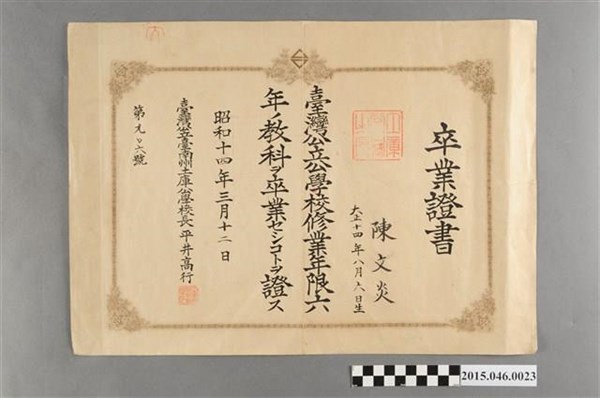 卒業證書
陳文炎
大正十四年八月六日生
臺灣公立公學校修業年限六
年ノ教科ヲ卒業セシコトヲ證ス
昭和十四年三月十二日
臺灣公立臺南州土庫公學校長平井高行
第九〉六號
2015.046.0023